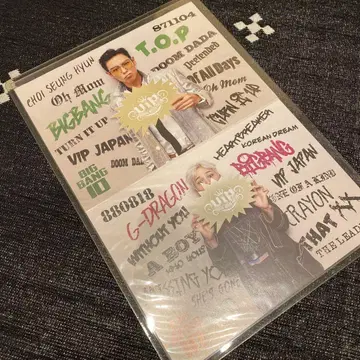 871104
T.O.P
CHOI SEUNG HYUN
Oh Mom
DOOM DADA
BIGBANG
Pretended
Of All Days
TURN IT UP
Oh Mom
VIP JAPAN
TURN IT UP
DOOM DADA
BIG
BANG
10
HEARTBREAKER
KOREAN DREAM
880818
BIGBANG
G-DRAGON
VIP JAPAN
WITHOUT YOU
ONE OF A KIND
A BOY
CRAYON
WHO YOU?
THAT XX
MISSING YOU
THE LEADER
SHE'S GONE